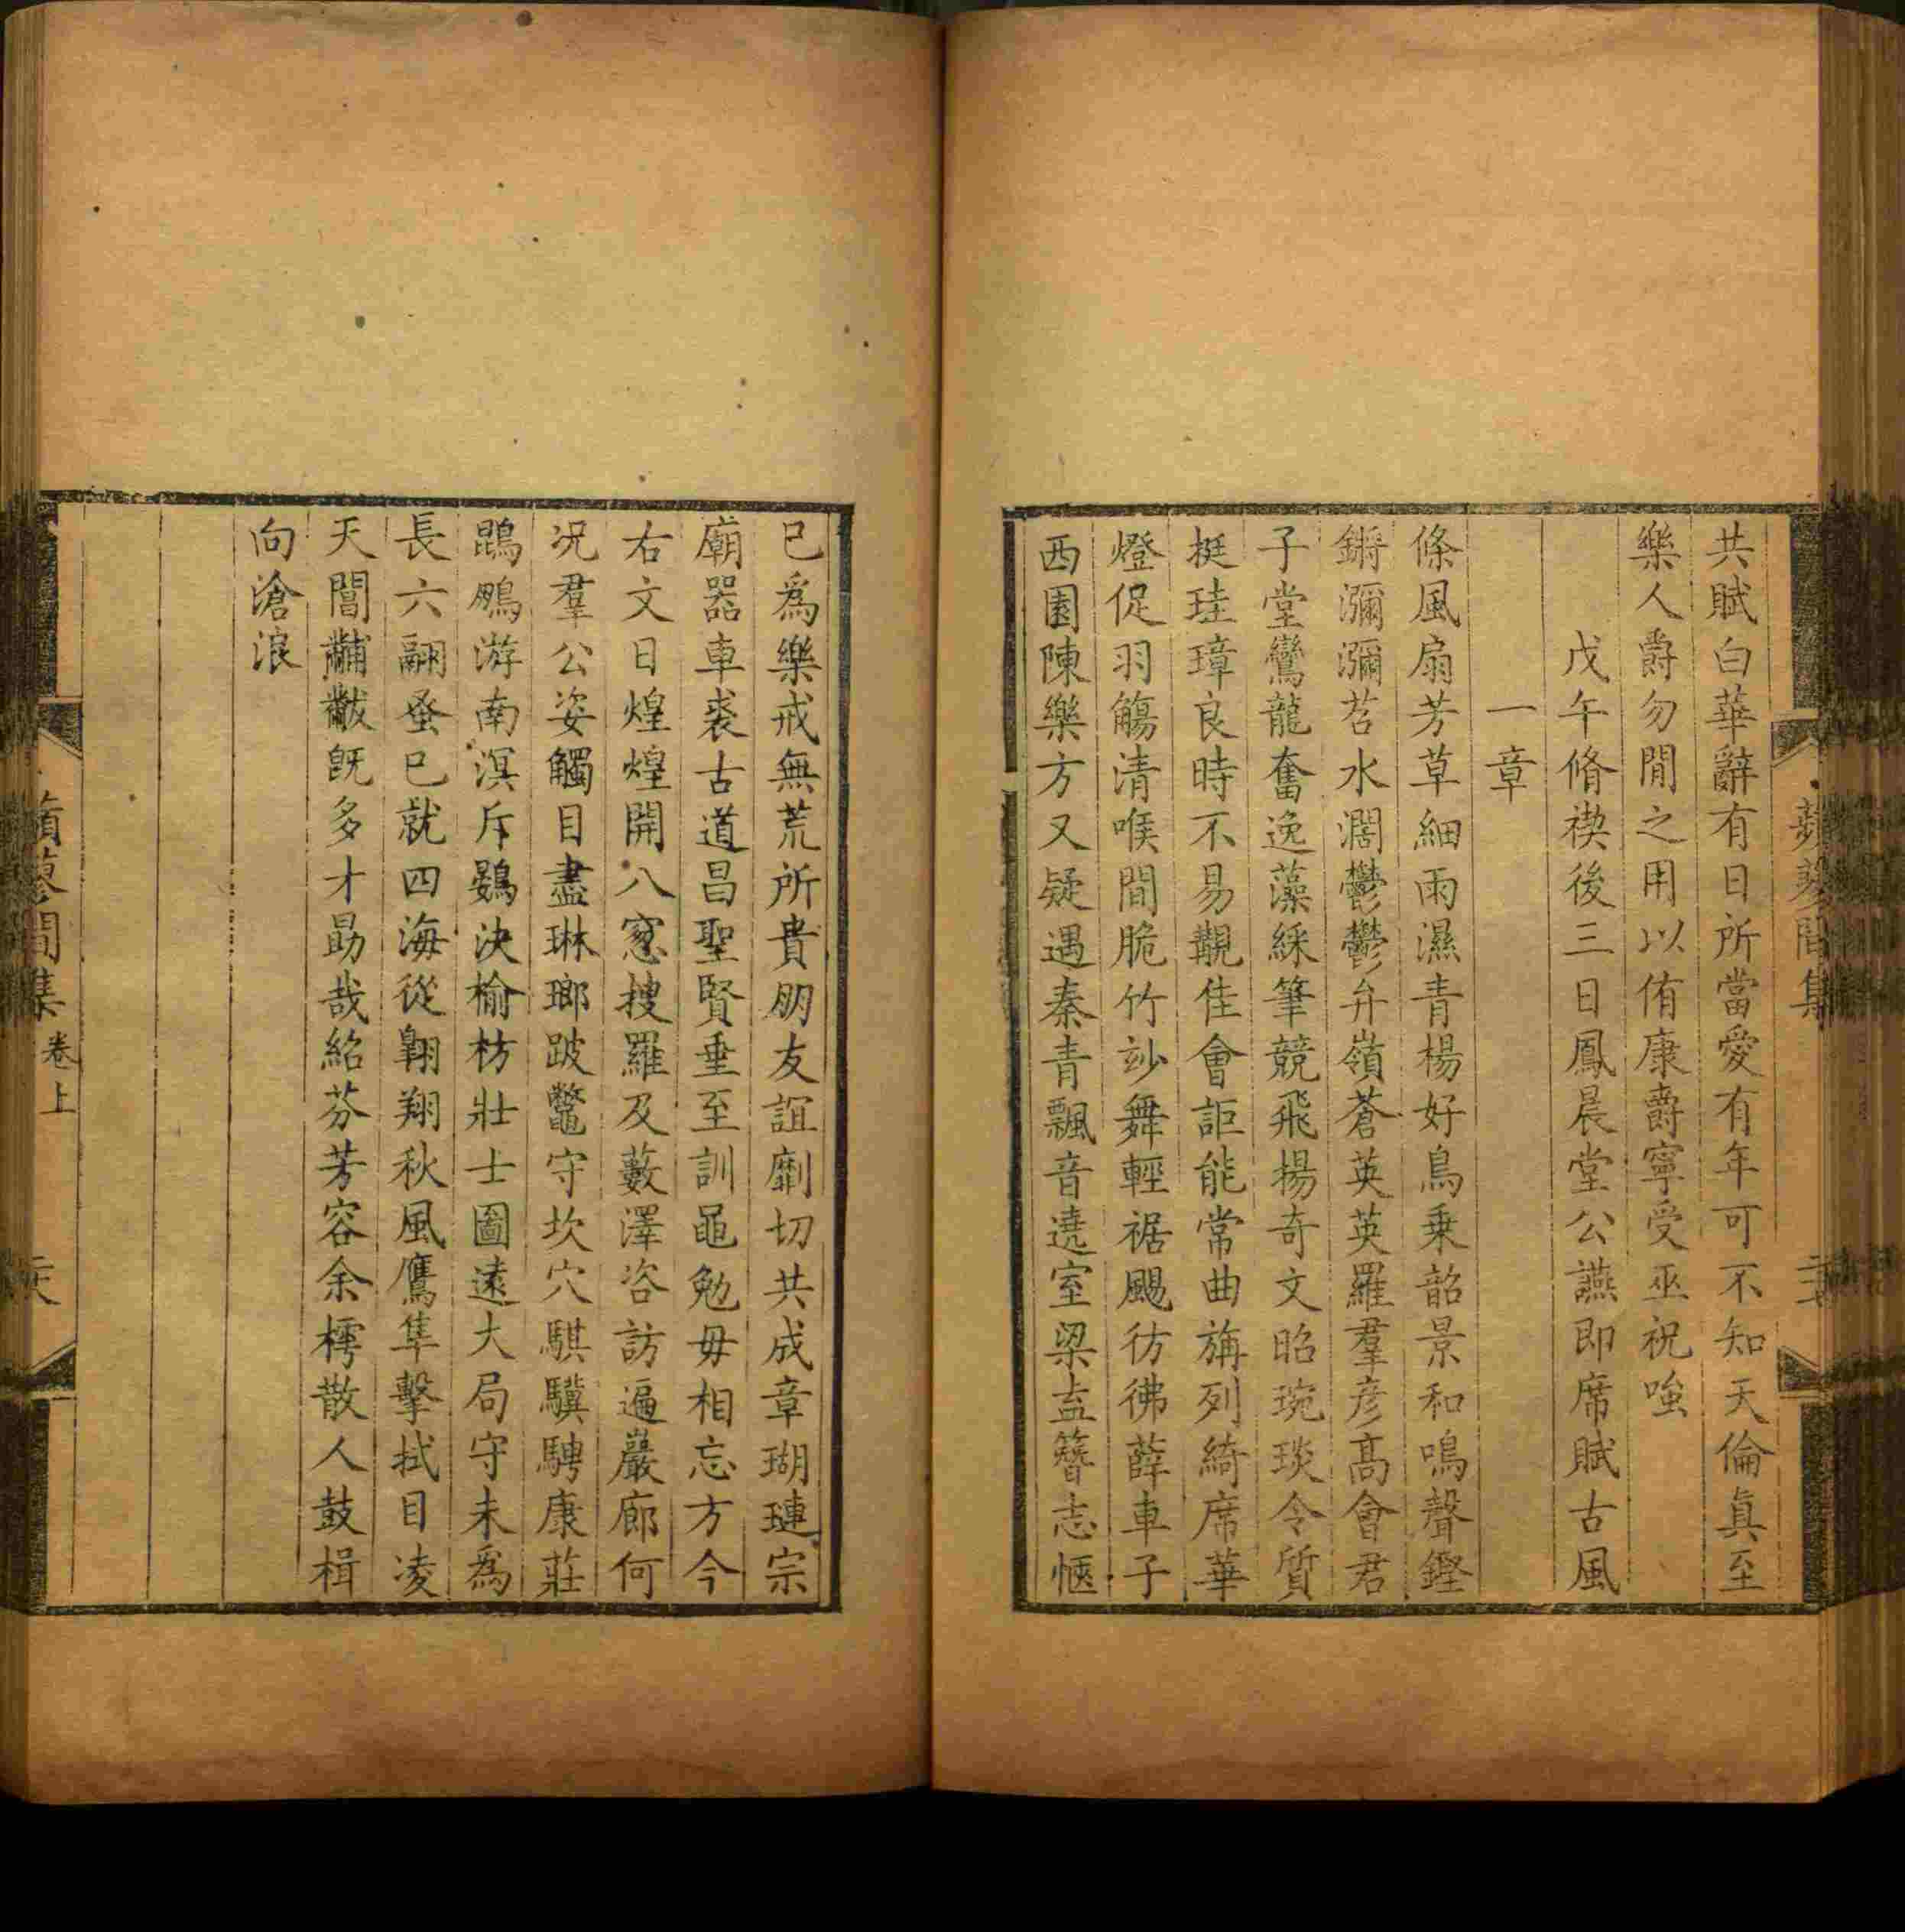 共賦白華辭有日所當愛有年可不知天倫真至
樂人爵勿閒之用以侑康爵寧受巫祝嗤
戊午脩禊後三日鳳晨堂公讌即席賦古風
一章
條風扇芳草細雨濕青楊好鳥乗韶景和鳴聲鏗
鏘瀰瀰苕水濶鬱鬱弁嶺蒼英英羅羣彦髙會君
子堂鸞龍奮逸藻綵筆競飛揚奇文昭琬琰令質
挺珪璋良時不易覯佳會詎能常曲旃列綺席華
燈促羽觴清喉間脆竹玅舞輕裾颺彷彿薛車子
西園陳樂方又疑遇秦青飄音遶室梁盍簪志愜
已爲樂戒無荒所貴朋友誼劘切共成章瑚璉宗
廟器車裘古道昌聖賢垂至訓黽勉毋相忘方今
右文日煌煌開八窓搜羅及藪澤咨訪遍巖廊何
况羣公姿觸目盡琳瑯跛鼈守坎穴騏驥騁康莊
鵾鵬游南溟斥鷃決榆枋壯士圖遠大局守未爲
長六翮蚤已就四海從翺翔秋風鷹隼擊拭目凌
天閶黼黻旣多才勗哉紹芬芳容余樗散人鼓楫
向滄浪
蓼閒集
卷上